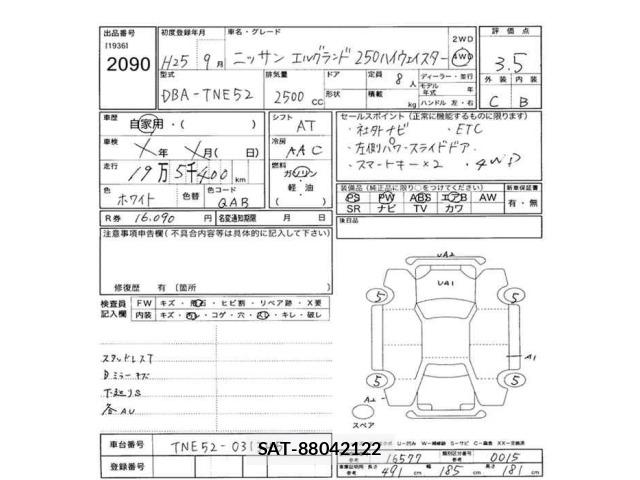 出品番号
[1936]
2090
初度登録年月
H25 9月
車名・グレード
ニッサン エルグランド 250ハイウェイスター
2WD
4WD
評価点
3.5
型式
DBA-TNE52
排気量
2500 CC
ドア
形状
定員 8人
積載 kg
ディーラー・並行
モデル年式 年
ハンドル 左・右
外装 内装
C B
車歴
自家用・( )
シフト
AT
車検
X年 X月( 日)
冷房
AAC
走行
19万5千400 km
燃料
ガソリン
軽・油
( )
色
ホワイト
色替
色コード
QAB
R券 16,090 円
名変通知期限 月 日
セールスポイント (正常に機能するものに限ります)
・社外ナビ ・ETC
・左側パワースライドドア
・スマートキー×2 ・4WD
装備品(純正品に限り○をつけてください)
PS PW ABS エアB AW
SR ナビ TV カワ
新車保証書
有・無
後日品
注意事項申告欄(不具合内容等は具体的に記入して下さい)
修復歴 有 〔箇所 〕
検査員記入欄
FW キズ・飛石・ヒビ割・リペア跡・X要
内装 キズ・汚レ・コゲ・穴・スレ・キレ・破レ
スタッドレスT
Dミラーキズ
下廻りS
各AU
UA2
UA1
5
5
5
5
A1
A2
スペア
車台番号
TNE52-031
登録番号
SAT-88042122
16577
類別区分番号
0015
車庫証明用参考
長さ 491 cm
幅 185 cm
高さ 181 cm